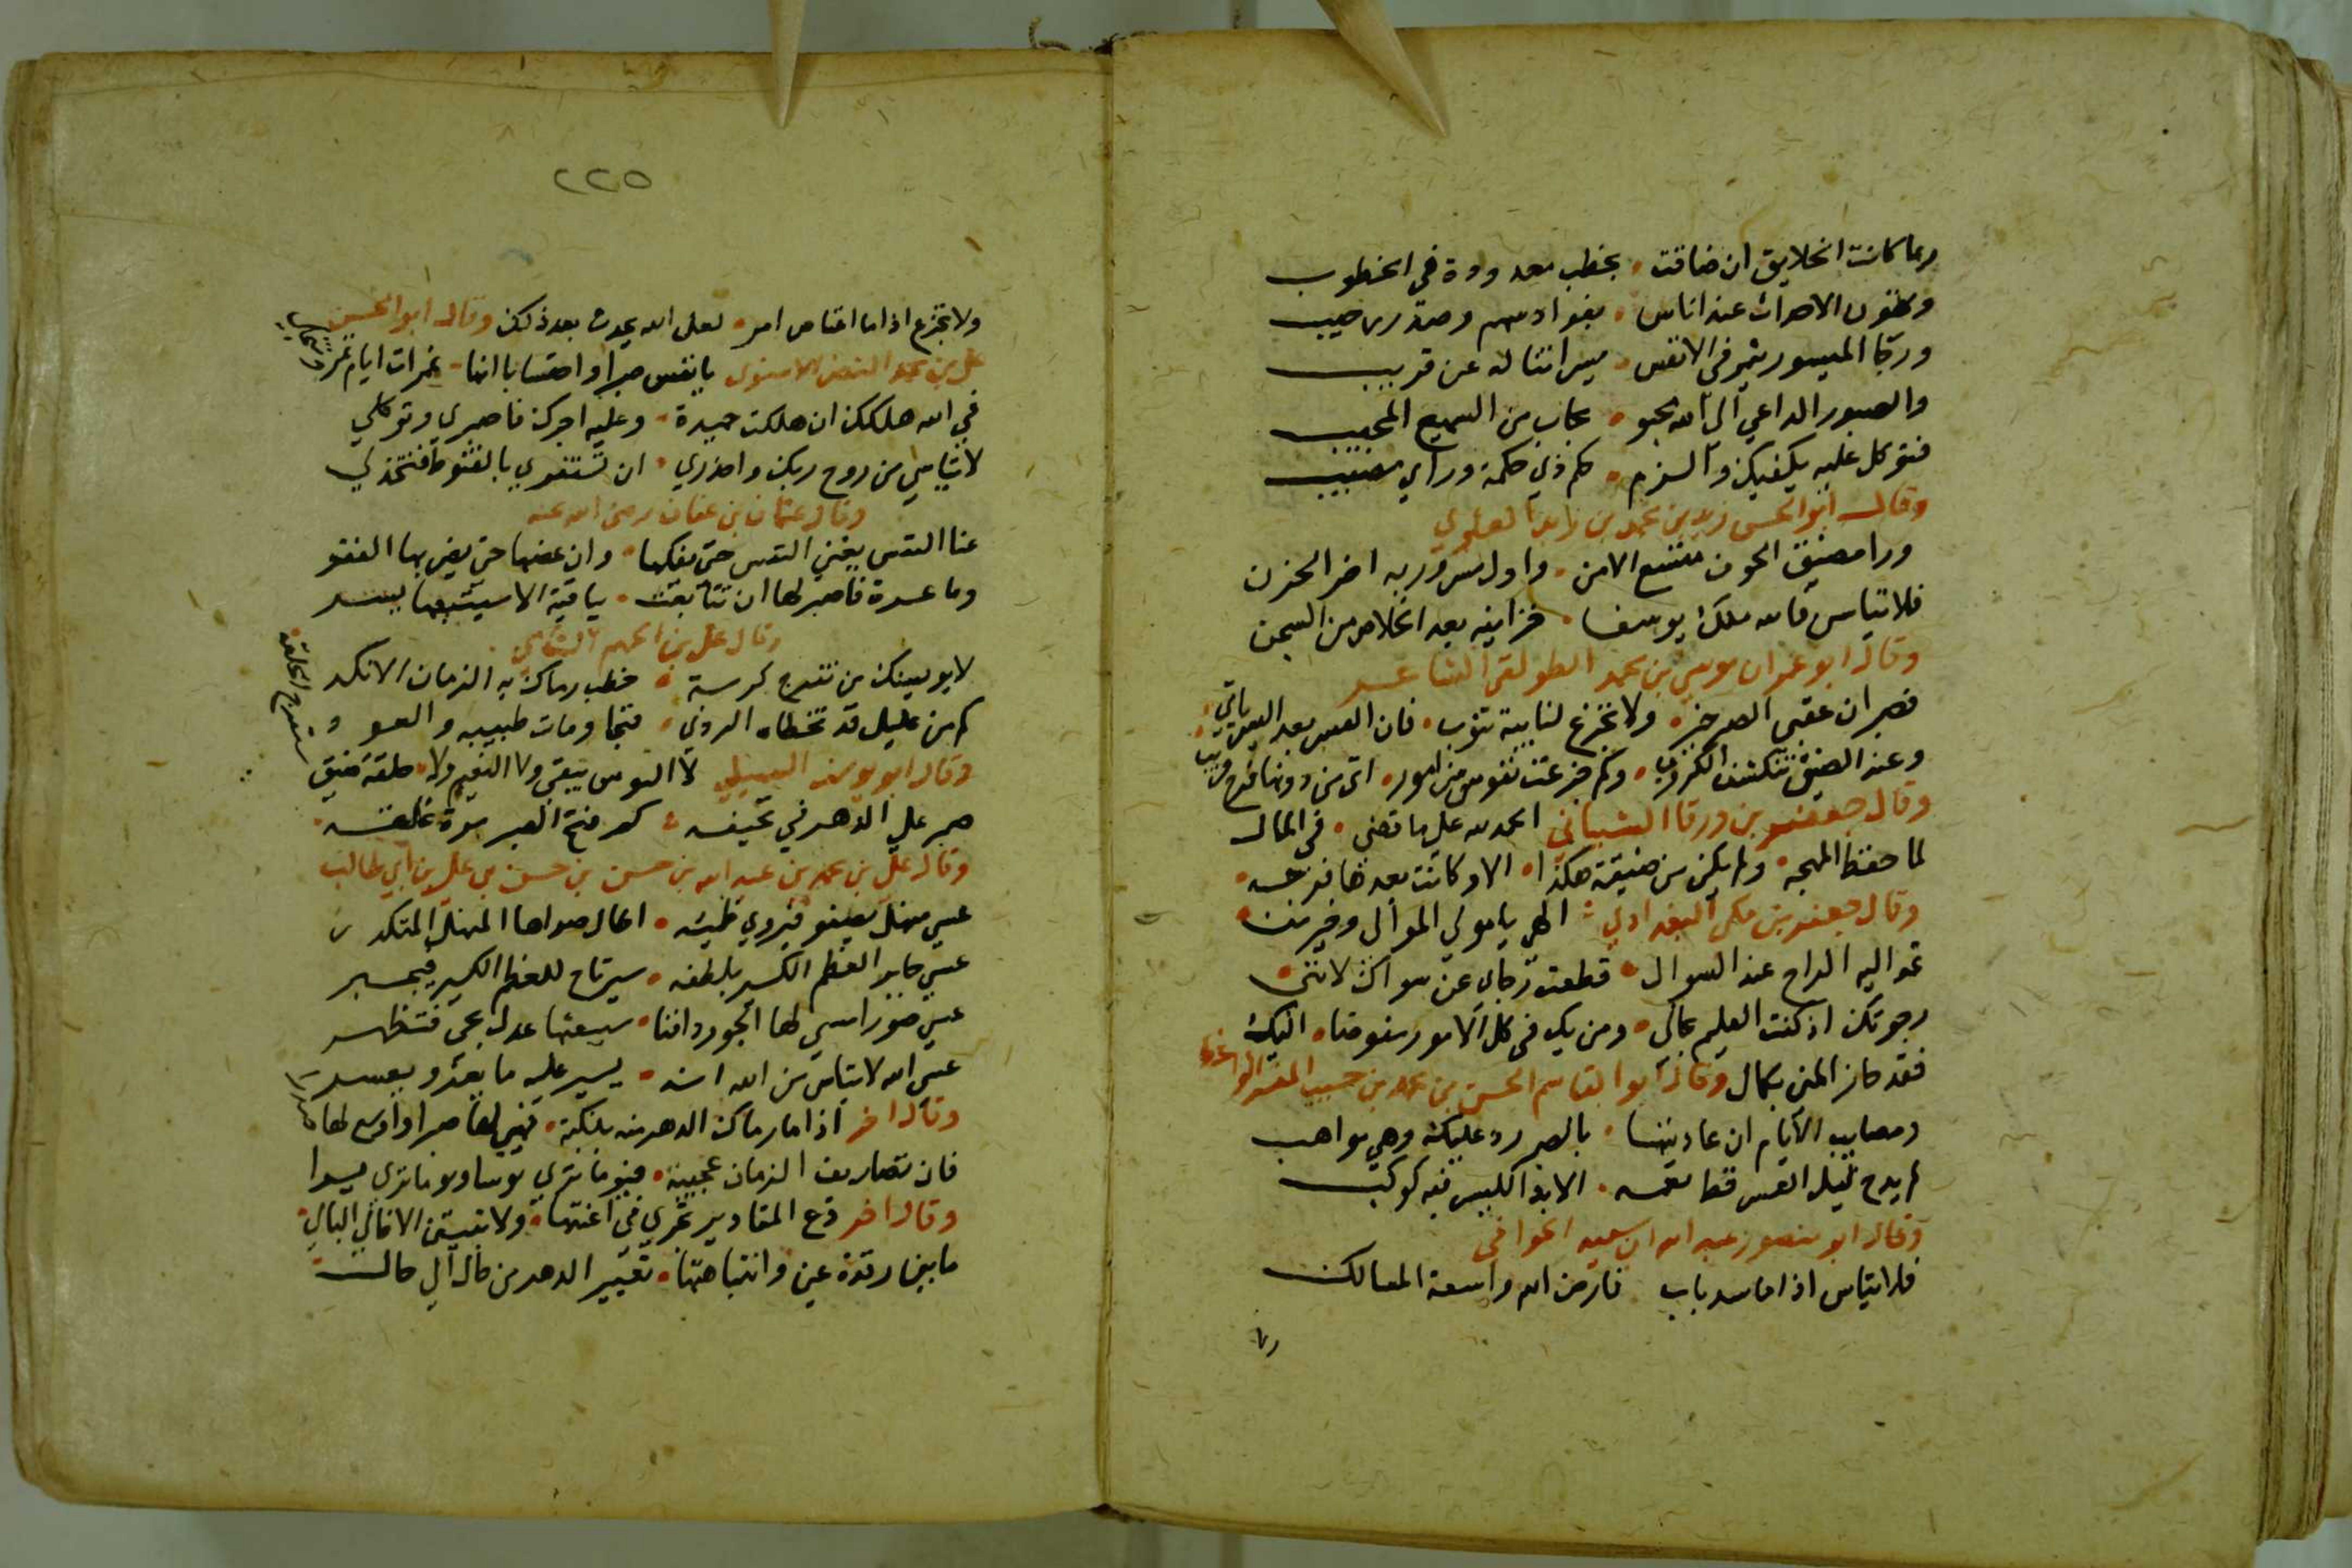 ربما كانت الخلايق ان ضاقت بخطب معدودة في الخطوب
وتكون الاحداث عند اناس بفوادهم وصدر رحيب
وربما الميسور في الانفس ميسرا نناله عن قريب
والصبور الداعي الى الله يحبو بجاب من السميع المجيب
فتوكل عليه يكفيك والزم كم ذي حكمة وراي مصيب
وقال ابو الحسن زيد بن محمد بن زيد العلوي
ورا مضيق الخوف متسع الامن واول مسرور به اخر الحزن
فلا تياس فالله ملك يوسفا خزاينه بعد الخلاص من السجن
وقال ابو عمران موسى بن محمد الطولقي الشاعر
فصبرا ان عقبى الصبر خير ولا تجزع لنايبة تنوب فان العسر بعد اليسر ياتي
وعند الضيق تنكشف الكروب وكم جزعت نفوس من امور اتى من دونها فرج قريب
وقال جعفر بن ورقا الشيباني الحمد لله على ما قضى في المال
لما حفظ المهجه ولم يكن من ضيقة هكذا الا وكانت بعدها فرجه
وقال جعفر بن مكي البغدادي الهي يا مولى الموالى وخير من
تمد اليه الراح عند السوال قطعت رجاي عن سواك لانني
رجوتك اذ كنت العليم بحالى ومن يك في كل الامور مفوضا اليك
فقد حاز المنى بكمال وقال ابو القاسم الحسن بن محمد بن حبيب المفسر الواعظ
ومصايب الايام ان عاديتها بالصبر رد عليك وهي مواهب
لم يدج ليل العسر قط بغمه الا بدا لليسر فيه كوكب
وقال ابو منصور عبد الله ابن سعيد الخوافي
فلا تياس اذا ما سد باب فارض الله واسعة المسالك
ولا
٢٢٥
ولا تجزع اذا ما اعتاص امر لعل الله يحدث بعد ذلك وقال ابو الحسن
علي بن محمد النضر الاسنوي يا نفس صبرا واحتسابا انها غمرات ايام تمر وتنجلي
في الله هلكك ان هلكت حميدة وعليه اجرك فاصبري وتوكلي
لا تياسي من روح ربك واحذري ان تستقري بالقنوط فتخذلي
وقال عثمان بن عفان رضي الله عنه
غنا النفس يغني النفس حتى يفكها وان عضها حتى يضر بها الفقر
وما عسرة فاصبر لها ان تتابعت بباقية الا سيتبعها يسر
وقال علي بن الجهم الشامي
لا يويسنك من تفرج كربة خطب رماك به الزمان الانكد
كم من عليل قد تخطاه الردى فنجا ومات طبيبه والعود
وقال ابو يوسف لا البوس يبقى ولا النعيم ولا حلقة ضيق ستفرج الحلقة
صبر على الدهر في تحيفه كم فتح الصبر مرة غلقه
وقال علي بن محمد بن عبد الله بن حسن بن حسن بن علي بن ابي طالب
عسى منهل يصفو فيروي ظميئه اطال صداها المنهل المتكدر
عسى جابر العظم الكسير بلطفه سيرتاح للعظم الكسير فيجبر
عسى صور امسى لها الجور دافنا سيبعثها عدل يجى فتظهر
عسى الله لا تياس من الله انه يسير عليه ما يعز ويعسر
وقال اخر اذا ما رماك الدهر منه بنكبة فهيئ لها صبرا واوسع لها صدرا
فان تصاريف الزمان عجيبة فيوما ترى يوسا ويوما ترى يسرا
وقال اخر دع المقادير تجري في اعنتها ولا تبيتن الا خالي البال
ما بين رقدة عين وانتباهتها تغيير الدهر من حال الى حال